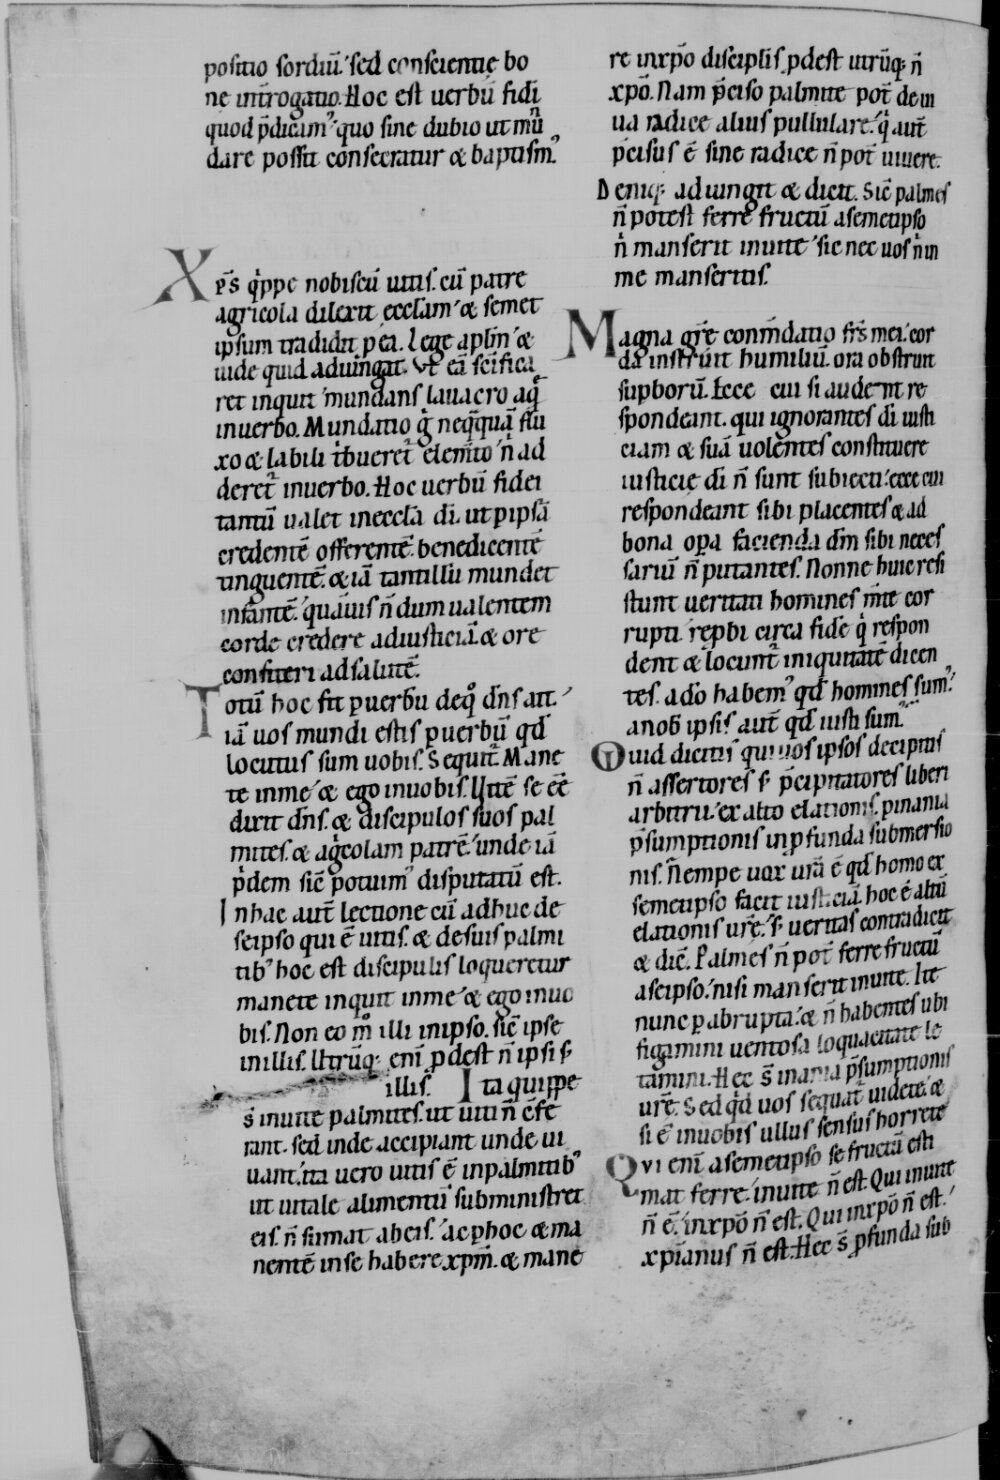 positio sordiū. sed conscientie bo
ne int̄rogatio. Hoc est uerbū fidi
quod p̄dicam᾽. quo sine dubio ut mū
dare possit consecratur & baptism᾽.
Xp̄s qͥppe nobiscū uitis. cū patre
agricola dilexit ecclam̄ & semet
ipsum tradidit p ea. Lege aplm̄ &
uide quid adiungat. Vt eā sc̄ifica
ret inquit mundans lauacro aq̄
inuerbo. Mundatio g̊ neq̄quā flu
xo & labili tͥbueret̄ elem̄to nͥ ad
deret̄ inuerbo. Hoc uerbū fidei
tantū ualet ineccl̄a dī. ut p ipsā
credentē offerentē benedicentē
tinguentē. & iā tantillū mundet
infantē. quāuis n̄dum ualentem
corde credere adiusticiā. & ore
confiteri adsalutē.
Totū hoc fit p uerbū deq̊ dn̄s ait.
iā uos mundi estis p uerbū qd̄
locutus sum uobis. Sequit̄. Mane
te inme & ego inuobis. Uitē se ēē
dixit dn̄s. & discipulos suos pal
mites. & agͥcolam patrē. unde iā
pͥdem sic̄ potuim᾽ disputatū est.
Inhac aut̄ lectione cū adhuc de
seipso qui ē uitis. & desuis palmi
tib᾽ hoc est discipulis loqueretur
manete inquit inme & ego inuo
bis. Non eo m̊ illi inipso. sic̄ ipse
inillis. Utrūq; eni p̄dest n̄ ipsi s;
illis. Ita quippe
s̄ inuite palmites. ut uiti n̄ cōfe
rant. sed inde accipiant unde ui
uant. ita uero uitis ē inpalmitib᾽
ut uitale alimentū subministret
eis. n̄ sumat abeis. ac phoc & ma
nentē inse habere xpm̄. & mane
re inxpo̅ discipl̄is pdest utrūq; n̄
xpō. Nam p̄ciso palmite pot̄ de ui
ua radice alius pullulare. qͥ aut̄
p̄cisus ē sine radice n̄ pot̄ uiuere.
Deniq; adiungit & dicit. Sic̄ palmes
n̄ potest ferre fructū asemetipso
nͥ manserit inuite sic nec uos nͥ in
me manseritis.
Magna gr̄e conm̄datio frs̄ mei. cor
da instruit humiliū. ora obstruit
supborū. Ecce cui si audent re
spondeant. qui ignorantes dī iusti
ciam & suā uolentes constituere
iusticie dī n̄ sunt subiecti. ecce cui
respondeant sibi placentes & ad
bona opa facienda dm̄ sibi neces
sariū n̄ putantes. Nonne huic resi
stunt ueritati homines m̄te cor
rupti. repbi circa fidē qͥ respon
dent & locunt̄ iniquitatē dicen
tes. ado̅ habem᾽ qd̄ homines sum᾽.
anob ipsis aut̄ qd̄ iusti sum᾽.
Quid dicitis qui uos ipsos decipitis
n̄ assertores s; p̄cipitatores liberi
arbitrii. ex alto elationis. p inania
p̄sumptionis inpfunda submersio
nis. Nempe uox ur̄a ē qd̄ homo ex
semetipso facit iusticiā. hoc ē altū
elationis ur̄e. s; ueritas contradicit
& dic̄. Palmes n̄ pot̄ ferre fructū
aseipso. nisi manserit inuite. Ite
nunc p abrupta. & n̄ habentes ubi
figamini uentosa loquacitate le
tamini. Hec s̄ inania p̄sumptionis
ur̄e. Sed qͥd uos sequat̄ uidete. &
si ē inuobis ullus sensus horrete
Qui eni asemetipso se fructū esti
mat ferre. inuite n̄ est. Qui inuite
n̄ ē. inxpo̅ n̄ est. Qui inxpo̅ n̄ est.
xpianus n̄ est. Hec s̄ pfunda sub